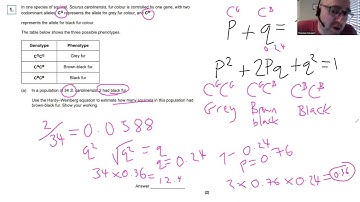 1.
In one species of squirrel, Sciurus carolinensis, fur colour is controlled by one gene, with two
codominant alleles. Cᴳ represents the allele for grey fur colour, and Cᴮ
represents the allele for black fur colour.
The table below shows the three possible phenotypes.
Genotype Phenotype
CᴳCᴳ Grey fur
CᴳCᴮ Brown-black fur
CᴮCᴮ Black fur
(a) In a population of 34 S. carolinensis, 2 had black fur.
Use the Hardy–Weinberg equation to estimate how many squirrels in this population had
brown-black fur. Show your working.
Answer
(2)
Cᴳ Cᴮ
P + q =
0.24
P² + 2Pq + q² = 1
CᴳCᴳ CᴳCᴮ CᴮCᴮ
Grey Brown black Black
2/34 = 0.0588
q² √q² = q
q = 0.24
34 × 0.36 =
12.4
1 - 0.24
P = 0.76
2 × 0.76 × 0.24 = 0.36